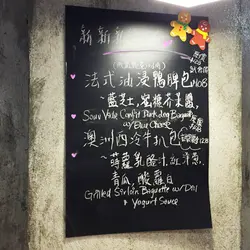 新 新 新
法式油浸鴨脾包 $108
藍芝士,蜜糖芥末醬,
Sous Vide Confit Duck Leg Baguette
w/ Blue Cheese
澳洲西冷牛扒包
蒔蘿乳酪汁,紅洋蔥,
青瓜,酸蘿白
Grilled Sirloin Baguette w/ Dill
& Yogurt Sauce